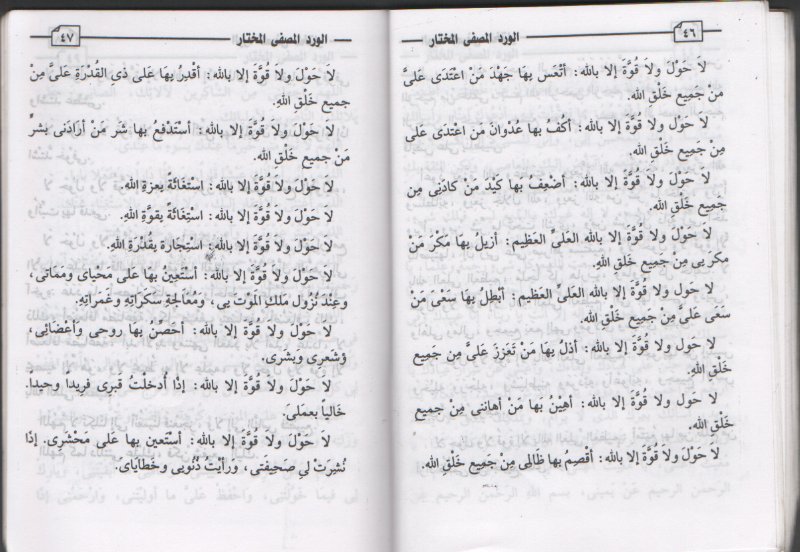 ٤٦
الورد المصفى المختار
لاَ حَوْلَ ولاَ قُوَّةَ إلا بالله: أتْعَس بِهَا جَهْدَ مَنْ اعْتَدَى عَلىَّ
مِنْ جَمِيع خَلْقِ الله.
لاَ حَوْلَ ولاَ قُوَّةَ إلا بالله: أكُفُ بِهَا عُدْوَانَ مَن اعْتَدَى عَلى
مِن جَمِيع خَلْقِ الله.
لاَ حَوْلَ ولاَ قُوَّةَ إلا بالله: أضْعِفُ بِهَا كَيْدَ مَنْ كَادَنِى مِن
جَمِيع خَلْقِ الله.
لاَ حَوْلَ ولاَ قُوَّةَ إلا بالله العَلىِّ العَظِيم: أزيلُ بِهَا مَكْرَ مَنْ
مكر بِى مِنْ جَمِيع خَلقِ الله.
لاَ حَوْلَ ولاَ قُوَّةَ إلا بالله العَلىِّ العَظِيم: أبْطِلُ بِهَا سَعْىَ مَنْ
سَعَى عَلىَّ مِنْ جَمِيع خَلْقِ الله.
لاَ حَوْلَ ولا قُوَّةَ إلا بالله: أذلُ بِهَا مَنْ تَعَزَزَ عَلىَّ مِن جَمِيع
خَلْقِ الله.
لاَ حَوْلَ ولاَ قُوَّةَ إلا بالله: أهِيْنُ بَهَا مَنْ أهاننى مِنْ جميع
خَلْقِ الله.
لاَ حَولَ ولاَ قُوَّةَ إلا بالله: أقْصِمُ بِهَا ظَالِمِى مِنْ جَمِيع خَلْقِ الله.
الورد المصفى المختار
٤٧
لاَ حَوْلَ ولاَ قُوَّةَ إلا بالله: أقْدِرُ بِهَا عَلَى ذِى القُدْرَةِ عَلىَّ مِنْ
جميع خَلْقِ الله.
لاَ حَوْلَ ولاَ قُوَّةَ إلا بالله: أسْتَدْفِعُ بِهَا شَر مَنْ أرَادَنى بشرٍّ
مَنْ جميع خَلْقِ الله.
لاَ حَوْلَ ولاَ قُوَّةَ إلا بالله: اسْتِغَاثَةً بعزة الله.
لاَ حَوْلَ ولاَ قُوَّةَ إلا بالله: استْغَاثَةً بقوَّةِ الله.
لاَ حَوْلَ ولاَ قُوَّةَ إلا بالله: اسْتِجَارة بِقُدْرَةِ الله.
لاَ حَوْلَ ولاَ قُوَّةَ إلا بالله: أسْتَعِينُ بِهَا عَلَى مَحْيَاىَ ومَمَاتى،
وعِنْدَ نُزُولِ مَلَكِ المَوْت بِى، ومُعَالَجَةِ سَكَرَاتِه وغَمَرَاتِه.
لاَ حَوْلَ ولاَ قُوَّةَ إلا بالله: أحَصِّنُ بِهَا روحى وَأعْضَائِى،
وَشَعرِى وَبَشرِى.
لاَ حَوْلَ ولاَ قُوَّةَ إلا بالله: إذَا أُدخلتُ قَبرى فَرِيدا وحيدا.
خَالياً بعملى.
لاَ حَوْلَ ولاَ قُوَّةَ إلا بالله: أسْتَعين بِهَا عَلى مَحْشَرِى. إذَا
نُشِرَتْ لى صَحِيفَتى، ورَأيْتُ ذُنُوبى وخَطَايَاىَ.